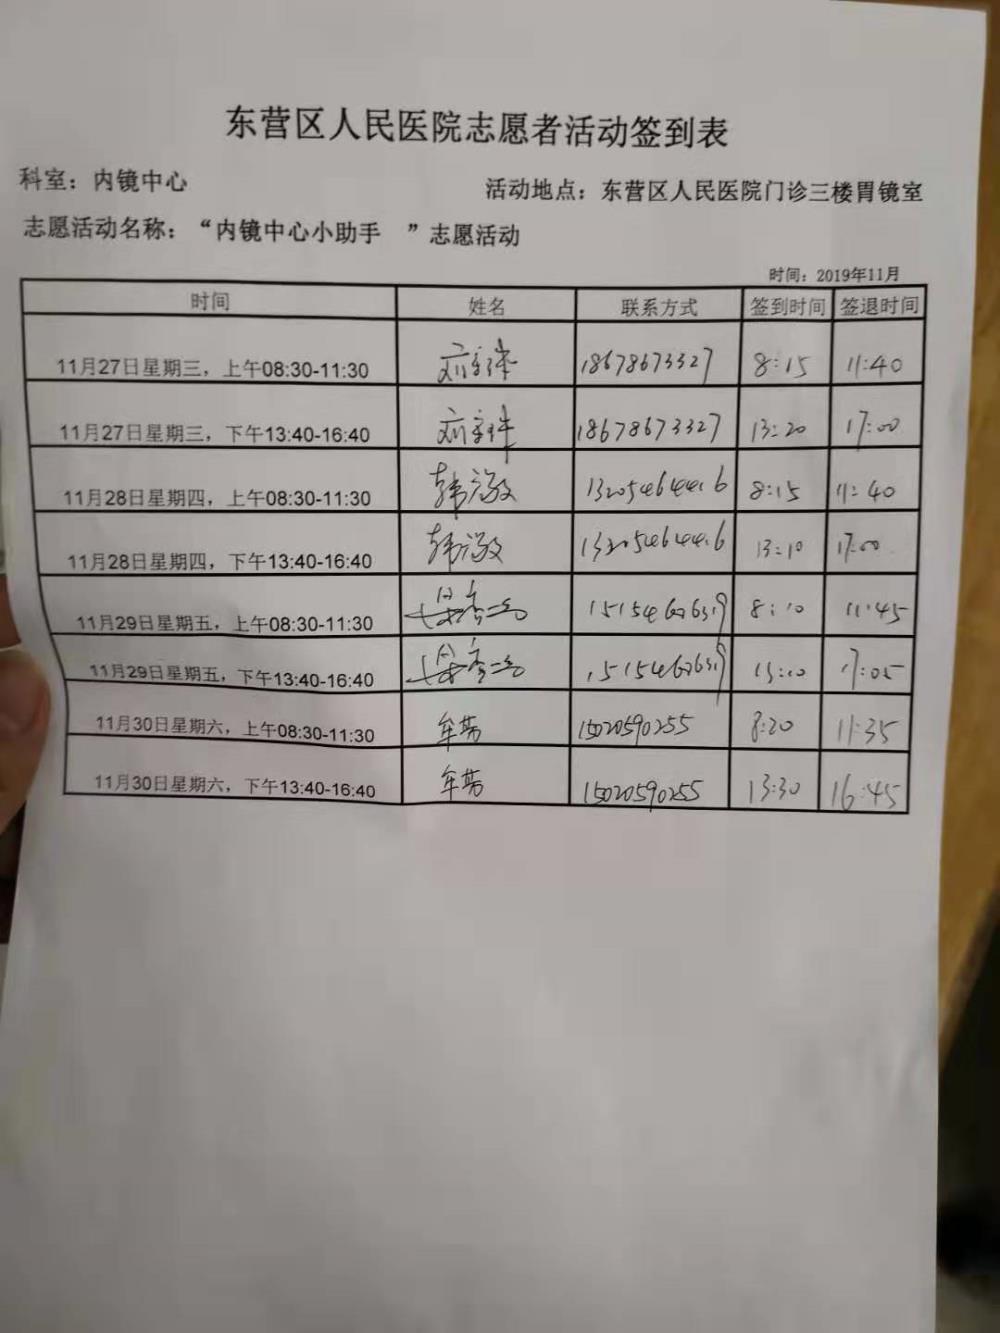 东营区人民医院志愿者活动签到表
科室：内镜中心 活动地点：东营区人民医院门诊三楼胃镜室
志愿活动名称：“内镜中心小助手 ”志愿活动
时间：2019年11月
时间 姓名 联系方式 签到时间 签退时间
11月27日星期三，上午08:30-11:30 18678673327 8:15 11:40
11月27日星期三，下午13:40-16:40 18678673327 13:20 17:00
11月28日星期四，上午08:30-11:30 13205464416 8:15 11:40
11月28日星期四，下午13:40-16:40 13205464416 13:10 17:00
11月29日星期五，上午08:30-11:30 8:10 11:45
11月29日星期五，下午13:40-16:40 13:10 17:05
11月30日星期六，上午08:30-11:30 15020590255 8:20 11:35
11月30日星期六，下午13:40-16:40 15020590255 13:30 16:45